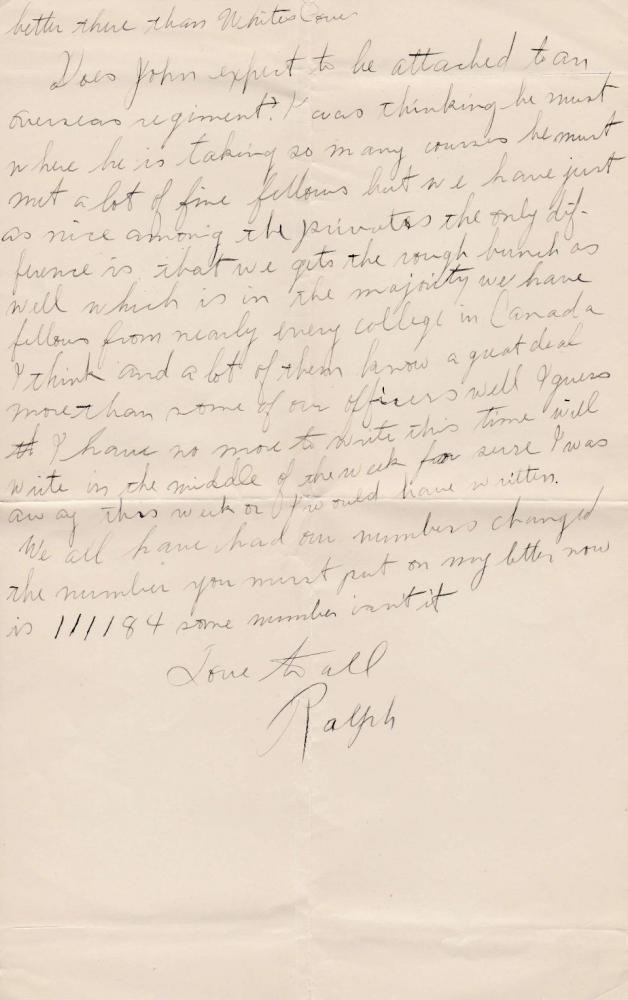 better there than Whites Cove
Does John expect to be attached to an
overseas regiment? I was thinking he must
where he is taking so many courses he must
met a lot of fine fellows but we have just
as nice among the privates the only dif-
ference is that we gets the rough bunch as
well which is in the majoilty we have
fellows from nearly every college in Canada
I think and a lot of them know a great deal
more than some of our officers well I guess
I have no more to write this time will
write in the middle of the week for sure I was
away this week or I would have written.
We all have had our numbers changed
the number you must put on my letter now
is 111184 some number isn't it
Love to all
Ralph